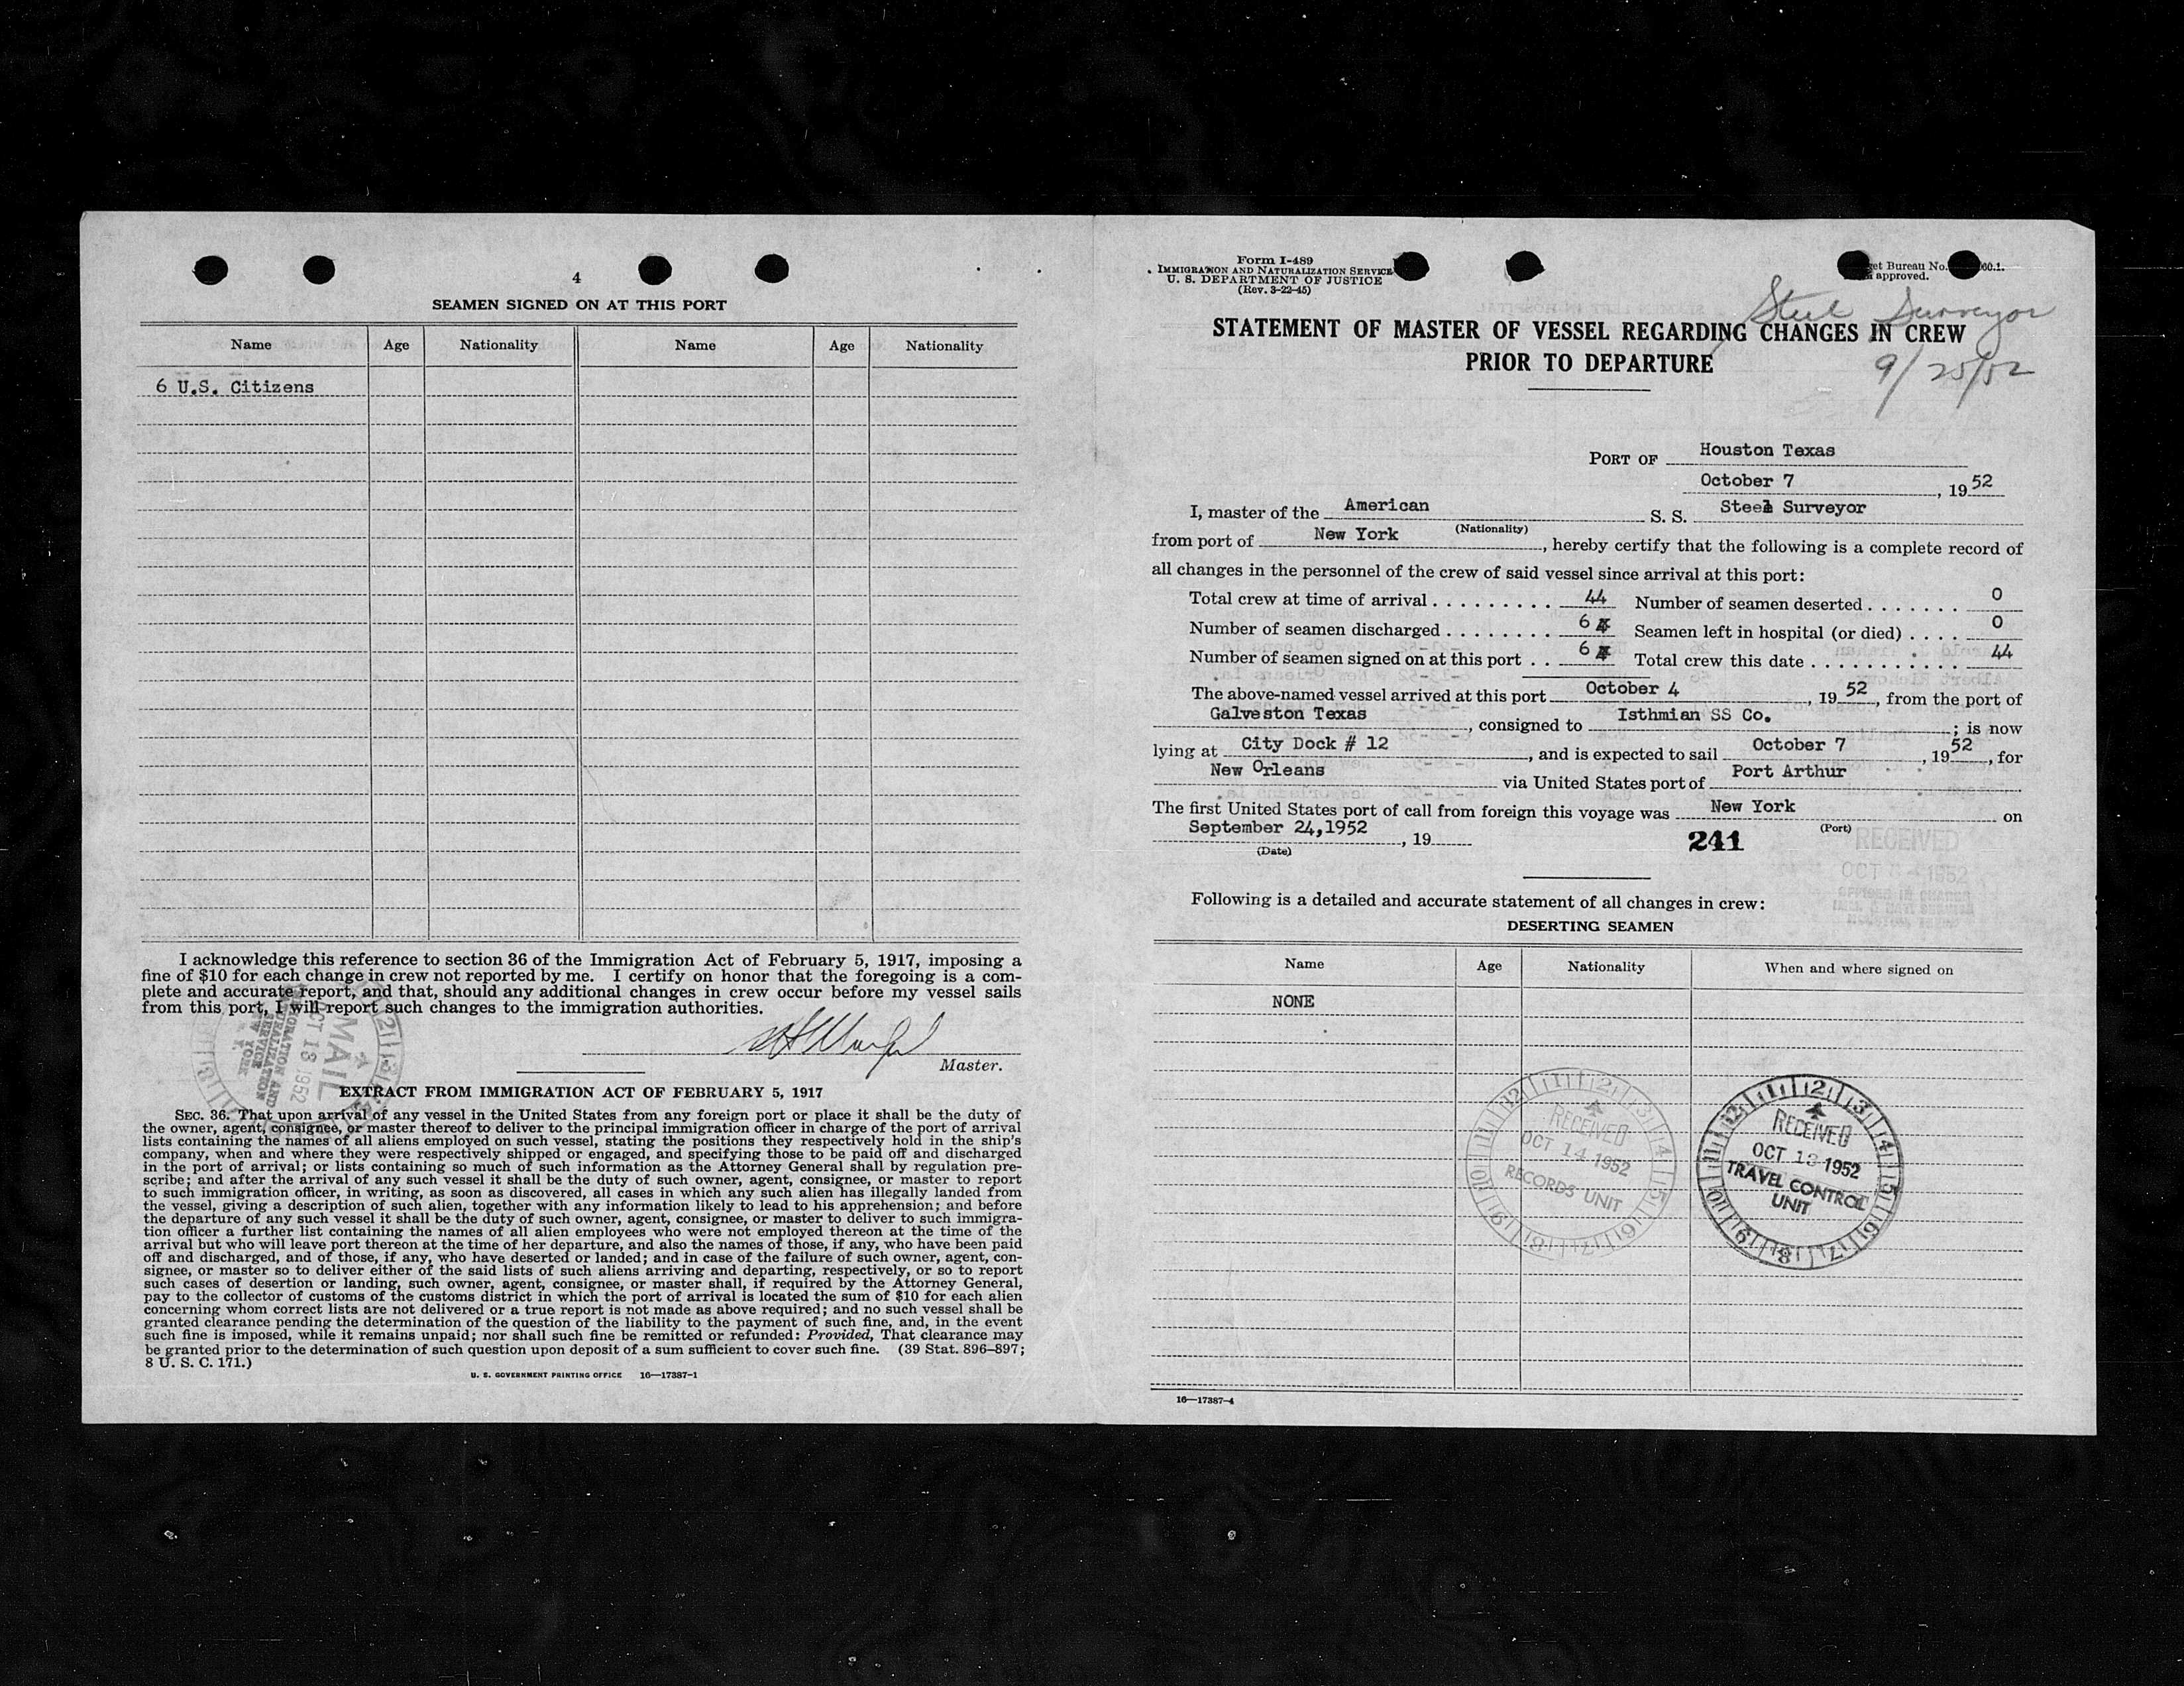 4
SEAMEN SIGNED ON AT THIS PORT
Name Age Nationality Name Age Nationality
6 U.S. Citizens
I acknowledge this reference to section 36 of the Immigration Act of February 5, 1917, imposing a
fine of $10 for each change in crew not reported by me. I certify on honor that the foregoing is a com-
plete and accurate report, and that, should any additional changes in crew occur before my vessel sails
from this port, I will report such changes to the immigration authorities.
Master.
MAIL
OCT 13 1952
IMMIGRATION AND
NATURALIZATION
SERVICE
NEW YORK
N. Y.
EXTRACT FROM IMMIGRATION ACT OF FEBRUARY 5, 1917
SEC. 36. That upon arrival of any vessel in the United States from any foreign port or place it shall be the duty of
the owner, agent, consignee, or master thereof to deliver to the principal immigration officer in charge of the port of arrival
lists containing the names of all aliens employed on such vessel, stating the positions they respectively hold in the ship's
company, when and where they were respectively shipped or engaged, and specifying those to be paid off and discharged
in the port of arrival; or lists containing so much of such information as the Attorney General shall by regulation pre-
scribe; and after the arrival of any such vessel it shall be the duty of such owner, agent, consignee, or master to report
to such immigration officer, in writing, as soon as discovered, all cases in which any such alien has illegally landed from
the vessel, giving a description of such alien, together with any information likely to lead to his apprehension; and before
the departure of any such vessel it shall be the duty of such owner, agent, consignee, or master to deliver to such immigra-
tion officer a further list containing the names of all alien employees who were not employed thereon at the time of the
arrival but who will leave port thereon at the time of her departure, and also the names of those, if any, who have been paid
off and discharged, and of those, if any, who have deserted or landed; and in case of the failure of such owner, agent, con-
signee, or master so to deliver either of the said lists of such aliens arriving and departing, respectively, or so to report
such cases of desertion or landing, such owner, agent, consignee, or master shall, if required by the Attorney General,
pay to the collector of customs of the customs district in which the port of arrival is located the sum of $10 for each alien
concerning whom correct lists are not delivered or a true report is not made as above required; and no such vessel shall be
granted clearance pending the determination of the question of the liability to the payment of such fine, and, in the event
such fine is imposed, while it remains unpaid; nor shall such fine be remitted or refunded: Provided, That clearance may
be granted prior to the determination of such question upon deposit of a sum sufficient to cover such fine. (39 Stat. 896–897;
8 U. S. C. 171.)
U. S. GOVERNMENT PRINTING OFFICE 16—17387-1
Form I-489
IMMIGRATION AND NATURALIZATION SERVICE
U. S. DEPARTMENT OF JUSTICE
(Rev. 3-22-45)
Bureau No. 60.1.
approved.
Steel Surveyor
STATEMENT OF MASTER OF VESSEL REGARDING CHANGES IN CREW
PRIOR TO DEPARTURE
9/25/52
PORT OF Houston Texas
October 7, 1952
I, master of the American S. S. Steel Surveyor
(Nationality)
from port of New York, hereby certify that the following is a complete record of
all changes in the personnel of the crew of said vessel since arrival at this port:
Total crew at time of arrival . . . . . . . . . . 44 Number of seamen deserted . . . . . . . 0
Number of seamen discharged . . . . . . . . 6 Seamen left in hospital (or died) . . . . 0
Number of seamen signed on at this port . . 6 Total crew this date . . . . . . . . . . . 44
The above-named vessel arrived at this port October 4, 1952, from the port of
Galveston Texas, consigned to Isthmian SS Co.; is now
lying at City Dock # 12, and is expected to sail October 7, 1952, for
New Orleans via United States port of Port Arthur
The first United States port of call from foreign this voyage was New York on
(Port)
September 24,1952, 19
(Date)
241
RECEIVED
OCT 1952
Following is a detailed and accurate statement of all changes in crew:
DESERTING SEAMEN
Name Age Nationality When and where signed on
NONE
RECEIVED
OCT 14 1952
RECORDS UNIT
RECEIVED
OCT 13 1952
TRAVEL CONTROL
UNIT
16—17387-4